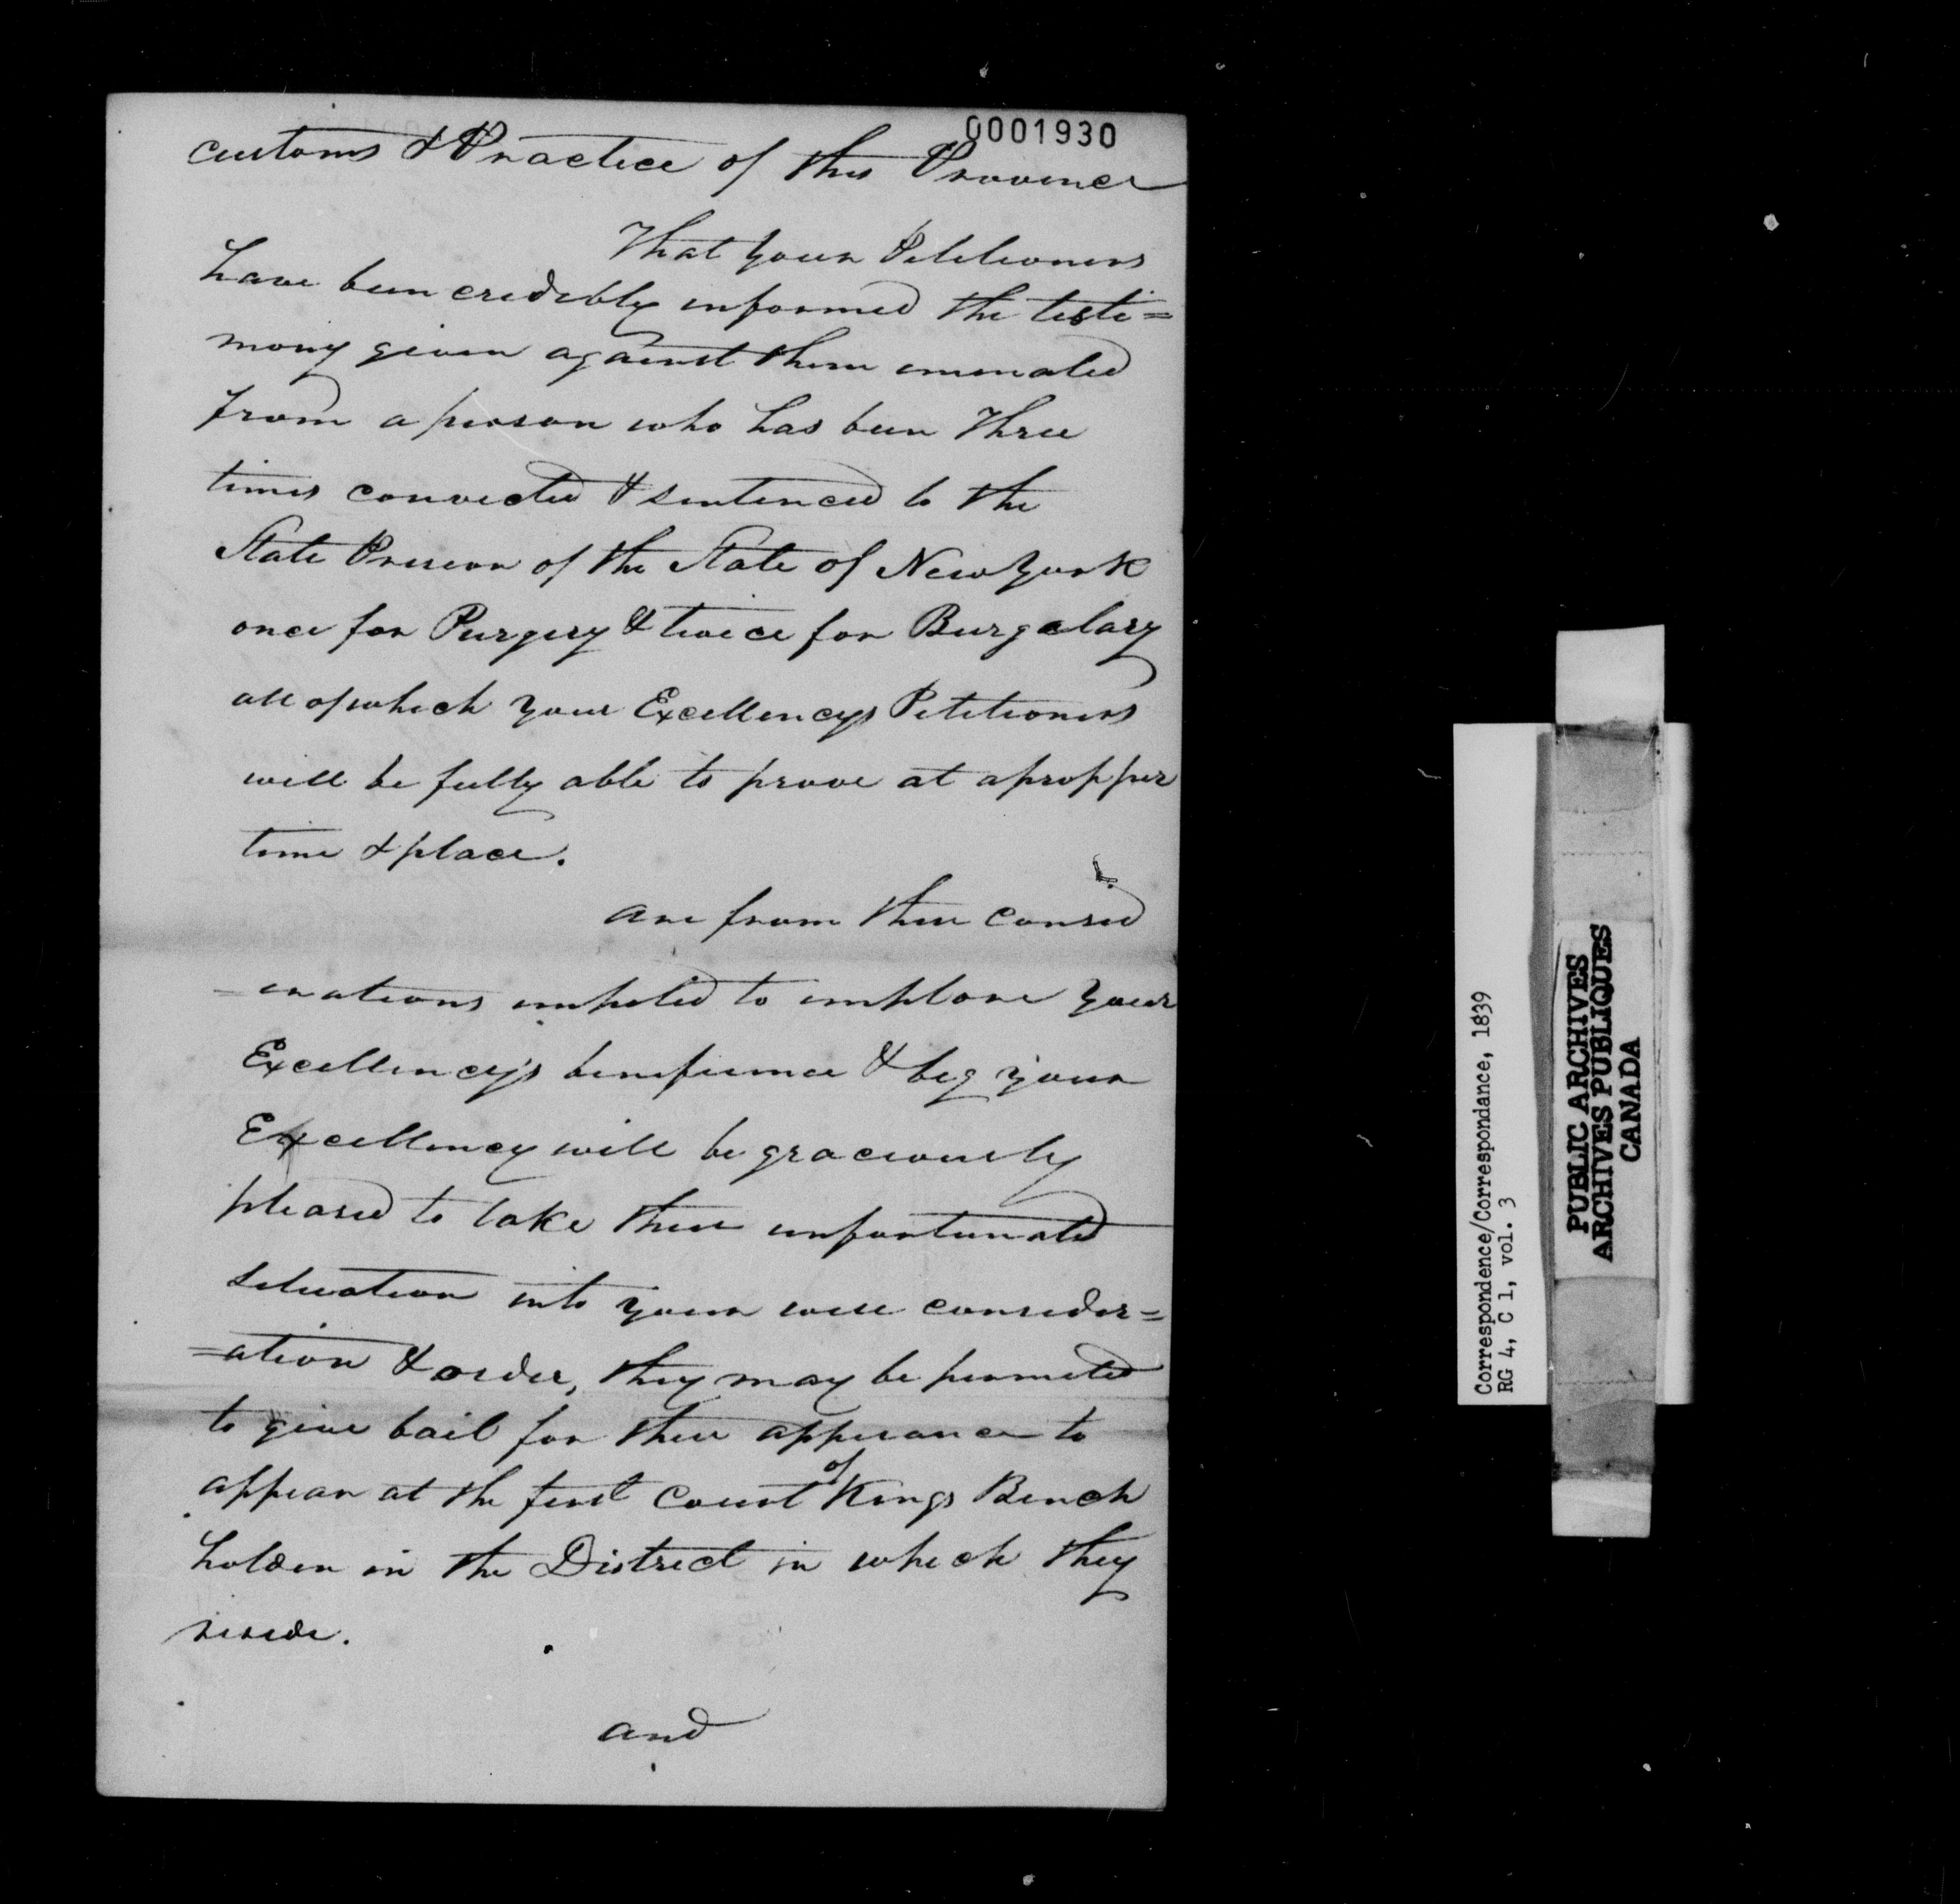 0001930
customs & Practice of this Province
That your Petitioners
have been credibly informed the testi=
mony given against them emenated
from a person who has been three
times convicted & sentenced to the
State Prison of the State of New York
once for Purgery & twice for Burgalary
all of which your Excellencys Petitioners
will be fully able to prove at a propper
time & place.
are from these consid
=erations impeled to implore your
Excellency's benificence & beg your
Excellency will be graciously
pleased to take their unfortunate
situation into your wise consider=
=ation & order, they may be permited
to give bail for their apperance to
appear at the first Court of Kings Bench
holden in the District in which they
reside.
and
Correspondence/Correspondance, 1839
RG 4, C 1, vol. 3
PUBLIC ARCHIVES
ARCHIVES PUBLIQUES
CANADA